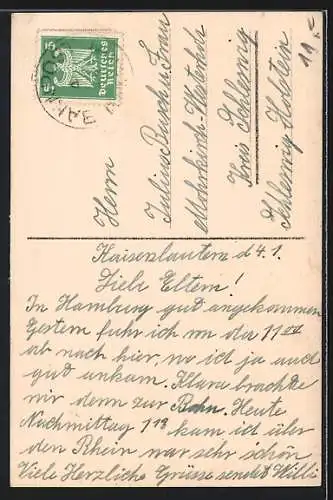 Deutsches Reich
5 5
BAHNPOST
11,-
Herrn
Julius Busch u. Frau
Mohrkirch-Westerholz
Kreis Schleswig
Schleswig-Holstein
Kaiserslautern d 4. 1.
Liebe Eltern!
In Hamburg gut angekommen
Gestern fuhr ich von da 11 00
ab nach hier, wo ich ja auch
gut ankam. Klara brachte
mir denn zur Bahn. Heute
Nachmittag 1 13 kam ich über
den Rhein war sehr schön
Viele Herzliche Grüsse sendet Willi